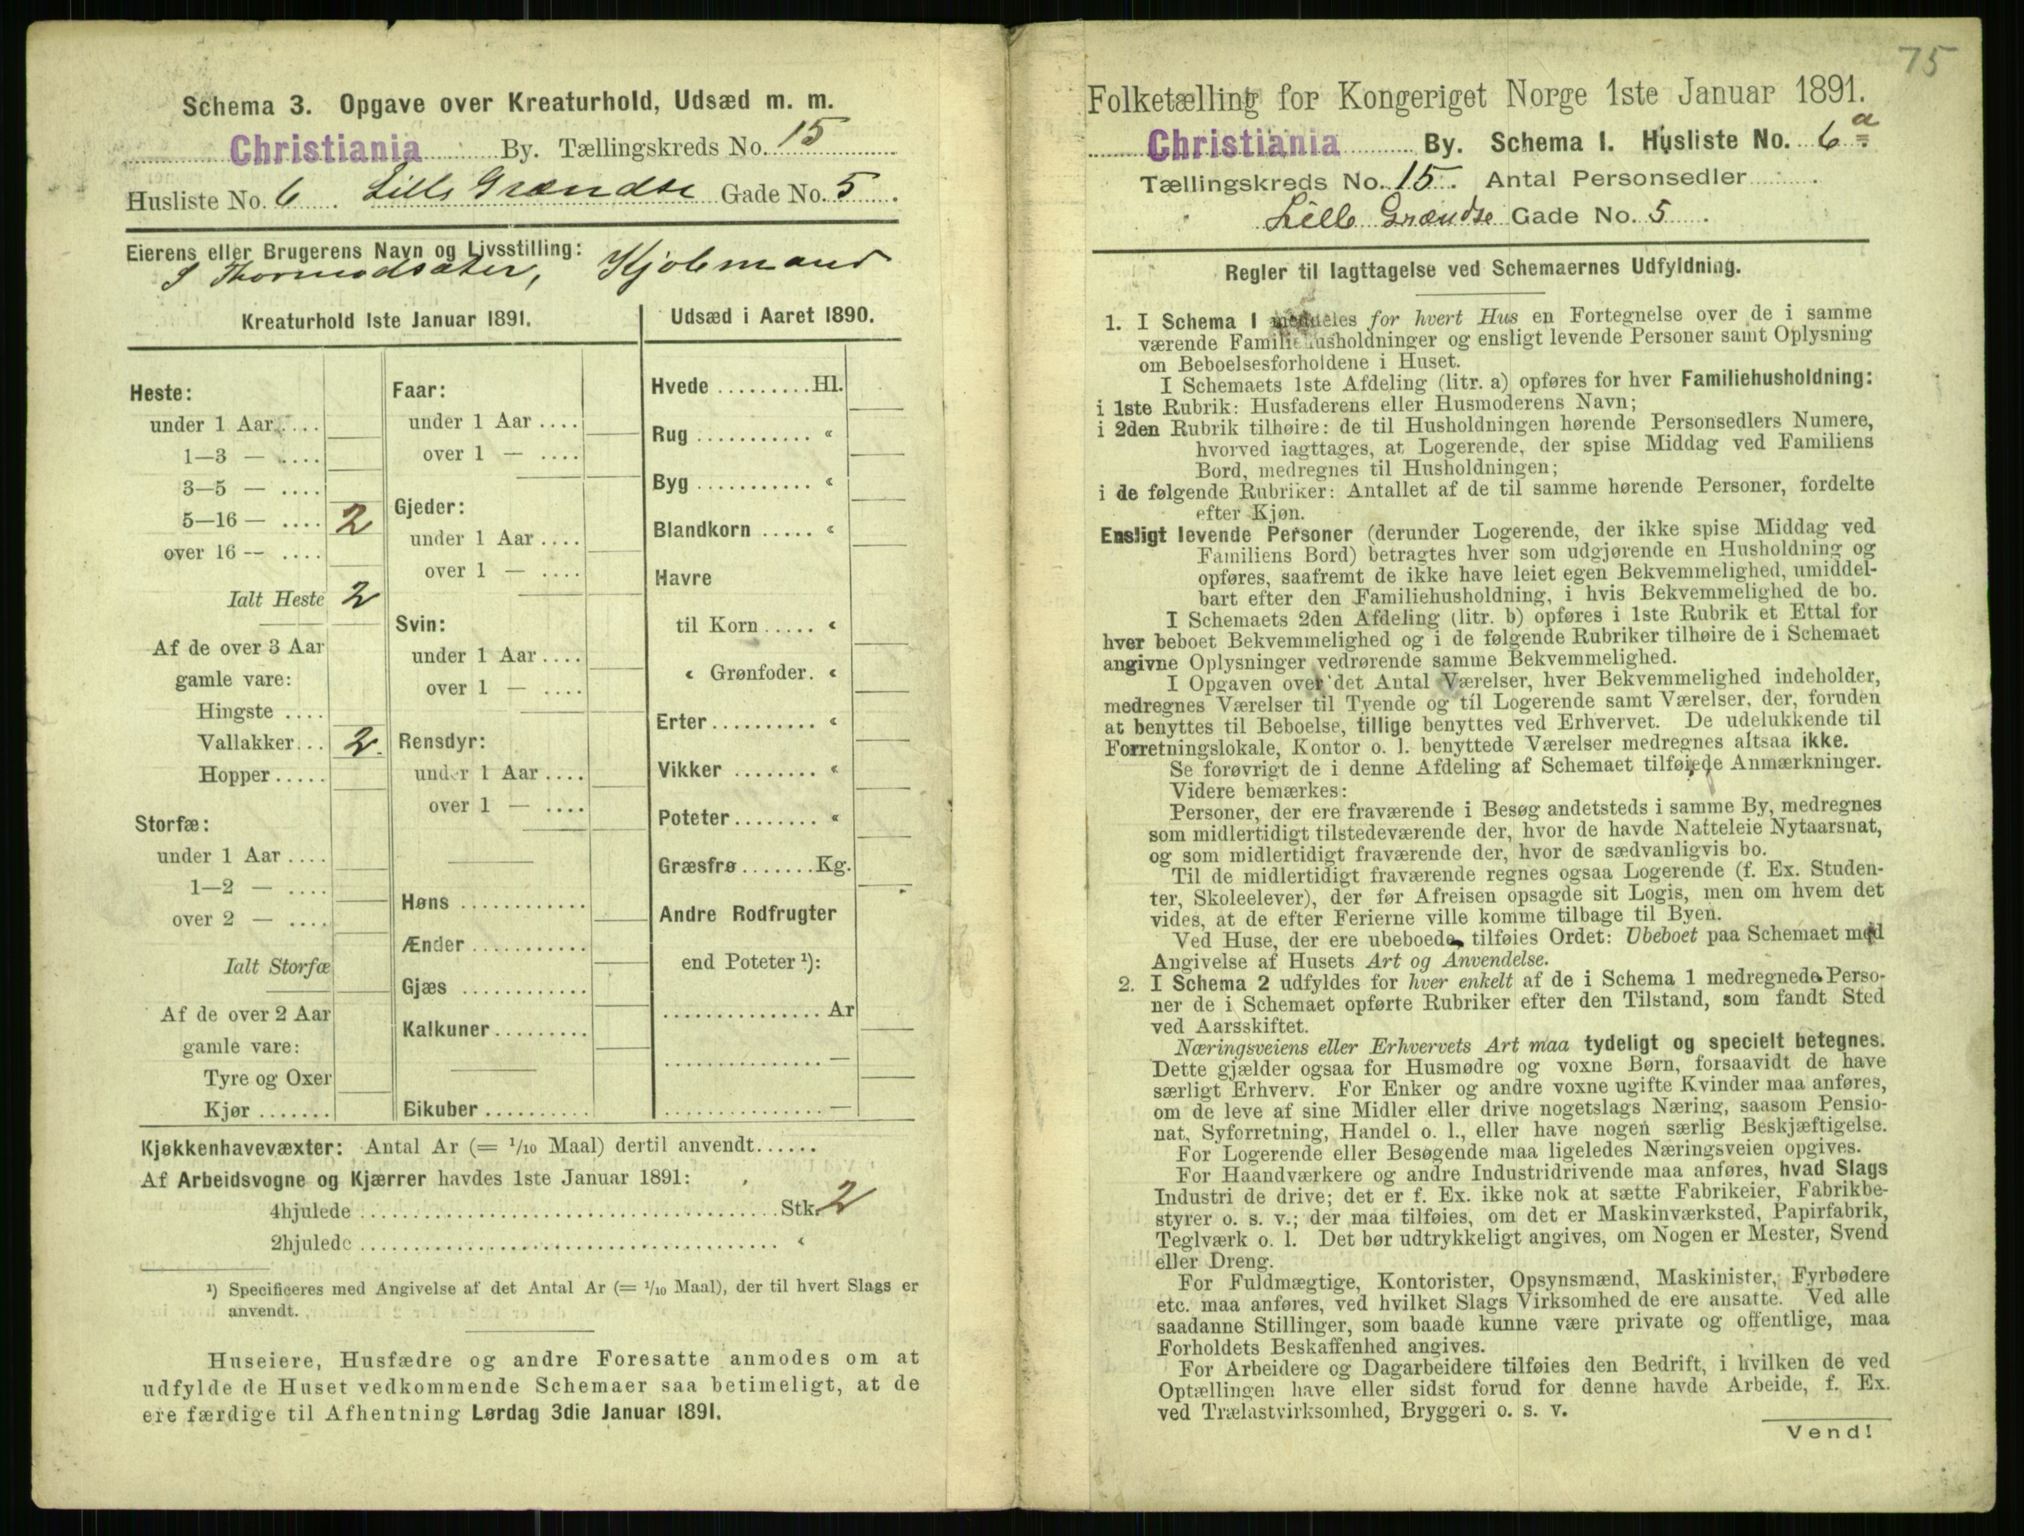 Schema 3. Opgave over Kreaturhold, Udsæd m. m.
Christiania By. Tællingskreds No. 15
Husliste No. 6 Lille Grændse Gade No. 5
Eierens eller Brugerens Navn og Livsstilling:
S Thormodsæter, Kjøbmand
Kreaturhold 1ste Januar 1891.
Heste:
under 1 Aar ....
1—3 — ....
3—5 — ....
5—16 — .... 2
over 16 — ....
Ialt Heste 2
Af de over 3 Aar
gamle vare:
Hingste ....
Vallakker... 2
Hopper .....
Storfæ:
under 1 Aar ....
1—2 — ....
over 2 — ....
Ialt Storfæ
Af de over 2 Aar
gamle vare:
Tyre og Oxer
Kjør .......
Faar:
under 1 Aar ....
over 1 — ....
Gjeder:
under 1 Aar ....
over 1 — ....
Svin:
under 1 Aar ....
over 1 — ....
Rensdyr:
under 1 Aar ....
over 1 — ....
Høns ............
Ænder ...........
Gjæs ............
Kalkuner .........
Bikuber ..........
Udsæd i Aaret 1890.
Hvede .........Hl.
Rug ........... «
Byg ........... «
Blandkorn ..... «
Havre
til Korn ..... «
« Grønfoder. «
Erter .......... «
Vikker ........ «
Poteter ........ «
Græsfrø .......Kg.
Andre Rodfrugter
end Poteter ¹):
............... Ar
............... —
............... —
Kjøkkenhavevæxter: Antal Ar (= 1/10 Maal) dertil anvendt......
Af Arbeidsvogne og Kjærrer havdes 1ste Januar 1891:
4hjulede ........................................ Stk. 2
2hjulede ........................................ «
¹) Specificeres med Angivelse af det Antal Ar (= 1/10 Maal), der til hvert Slags er
anvendt.
Huseiere, Husfædre og andre Foresatte anmodes om at
udfylde de Huset vedkommende Schemaer saa betimeligt, at de
ere færdige til Afhentning Lørdag 3die Januar 1891.
75
Folketælling for Kongeriget Norge 1ste Januar 1891.
Christiania By. Schema 1. Husliste No. 6 a
Tællingskreds No. 15. Antal Personsedler
Lille Grændse Gade No. 5
Regler til Iagttagelse ved Schemaernes Udfyldning.
1. I Schema 1 meddeles for hvert Hus en Fortegnelse over de i samme
værende Familiehusholdninger og ensligt levende Personer samt Oplysning
om Beboelsesforholdene i Huset.
I Schemaets 1ste Afdeling (litr. a) opføres for hver Familiehusholdning:
i 1ste Rubrik: Husfaderens eller Husmoderens Navn;
i 2den Rubrik tilhøire: de til Husholdningen hørende Personsedlers Numere,
hvorved iagttages, at Logerende, der spise Middag ved Familiens
Bord, medregnes til Husholdningen;
i de følgende Rubriker: Antallet af de til samme hørende Personer, fordelte
efter Kjøn.
Ensligt levende Personer (derunder Logerende, der ikke spise Middag ved
Familiens Bord) betragtes hver som udgjørende en Husholdning og
opføres, saafremt de ikke have leiet egen Bekvemmelighed, umiddel-
bart efter den Familiehusholdning, i hvis Bekvemmelighed de bo.
I Schemaets 2den Afdeling (litr. b) opføres i 1ste Rubrik et Ettal for
hver beboet Bekvemmelighed og i de følgende Rubriker tilhøire de i Schemaet
angivne Oplysninger vedrørende samme Bekvemmelighed.
I Opgaven over det Antal Værelser, hver Bekvemmelighed indeholder,
medregnes Værelser til Tyende og til Logerende samt Værelser, der, foruden
at benyttes til Beboelse, tillige benyttes ved Erhvervet. De udelukkende til
Forretningslokale, Kontor o. l. benyttede Værelser medregnes altsaa ikke.
Se forøvrigt de i denne Afdeling af Schemaet tilføiede Anmærkninger.
Videre bemærkes:
Personer, der ere fraværende i Besøg andetsteds i samme By, medregnes
som midlertidigt tilstedeværende der, hvor de havde Natteleie Nytaarsnat,
og som midlertidigt fraværende der, hvor de sædvanligvis bo.
Til de midlertidigt fraværende regnes ogsaa Logerende (f. Ex. Studen-
ter, Skoleelever), der før Afreisen opsagde sit Logis, men om hvem det
vides, at de efter Ferierne ville komme tilbage til Byen.
Ved Huse, der ere ubeboede, tilføies Ordet: Ubeboet paa Schemaet med
Angivelse af Husets Art og Anvendelse.
2. I Schema 2 udfyldes for hver enkelt af de i Schema 1 medregnede Perso-
ner de i Schemaet opførte Rubriker efter den Tilstand, som fandt Sted
ved Aarsskiftet.
Næringsveiens eller Erhvervets Art maa tydeligt og specielt betegnes.
Dette gjælder ogsaa for Husmødre og voxne Børn, forsaavidt de have
særligt Erhverv. For Enker og andre voxne ugifte Kvinder maa anføres,
om de leve af sine Midler eller drive nogetslags Næring, saasom Pensio-
nat, Syforretning, Handel o. l., eller have nogen særlig Beskjæftigelse.
For Logerende eller Besøgende maa ligeledes Næringsveien opgives.
For Haandværkere og andre Industridrivende maa anføres, hvad Slags
Industri de drive; det er f. Ex. ikke nok at sætte Fabrikeier, Fabrikbe-
styrer o. s. v.; der maa tilføies, om det er Maskinværksted, Papirfabrik,
Teglværk o. l. Det bør udtrykkeligt angives, om Nogen er Mester, Svend
eller Dreng.
For Fuldmægtige, Kontorister, Opsynsmænd, Maskinister, Fyrbødere
etc. maa anføres, ved hvilket Slags Virksomhed de ere ansatte. Ved alle
saadanne Stillinger, som baade kunne være private og offentlige, maa
Forholdets Beskaffenhed angives.
For Arbeidere og Dagarbeidere tilføies den Bedrift, i hvilken de ved
Optællingen have eller sidst forud for denne havde Arbeide, f. Ex.
ved Trælastvirksomhed, Bryggeri o. s. v.
Vend!